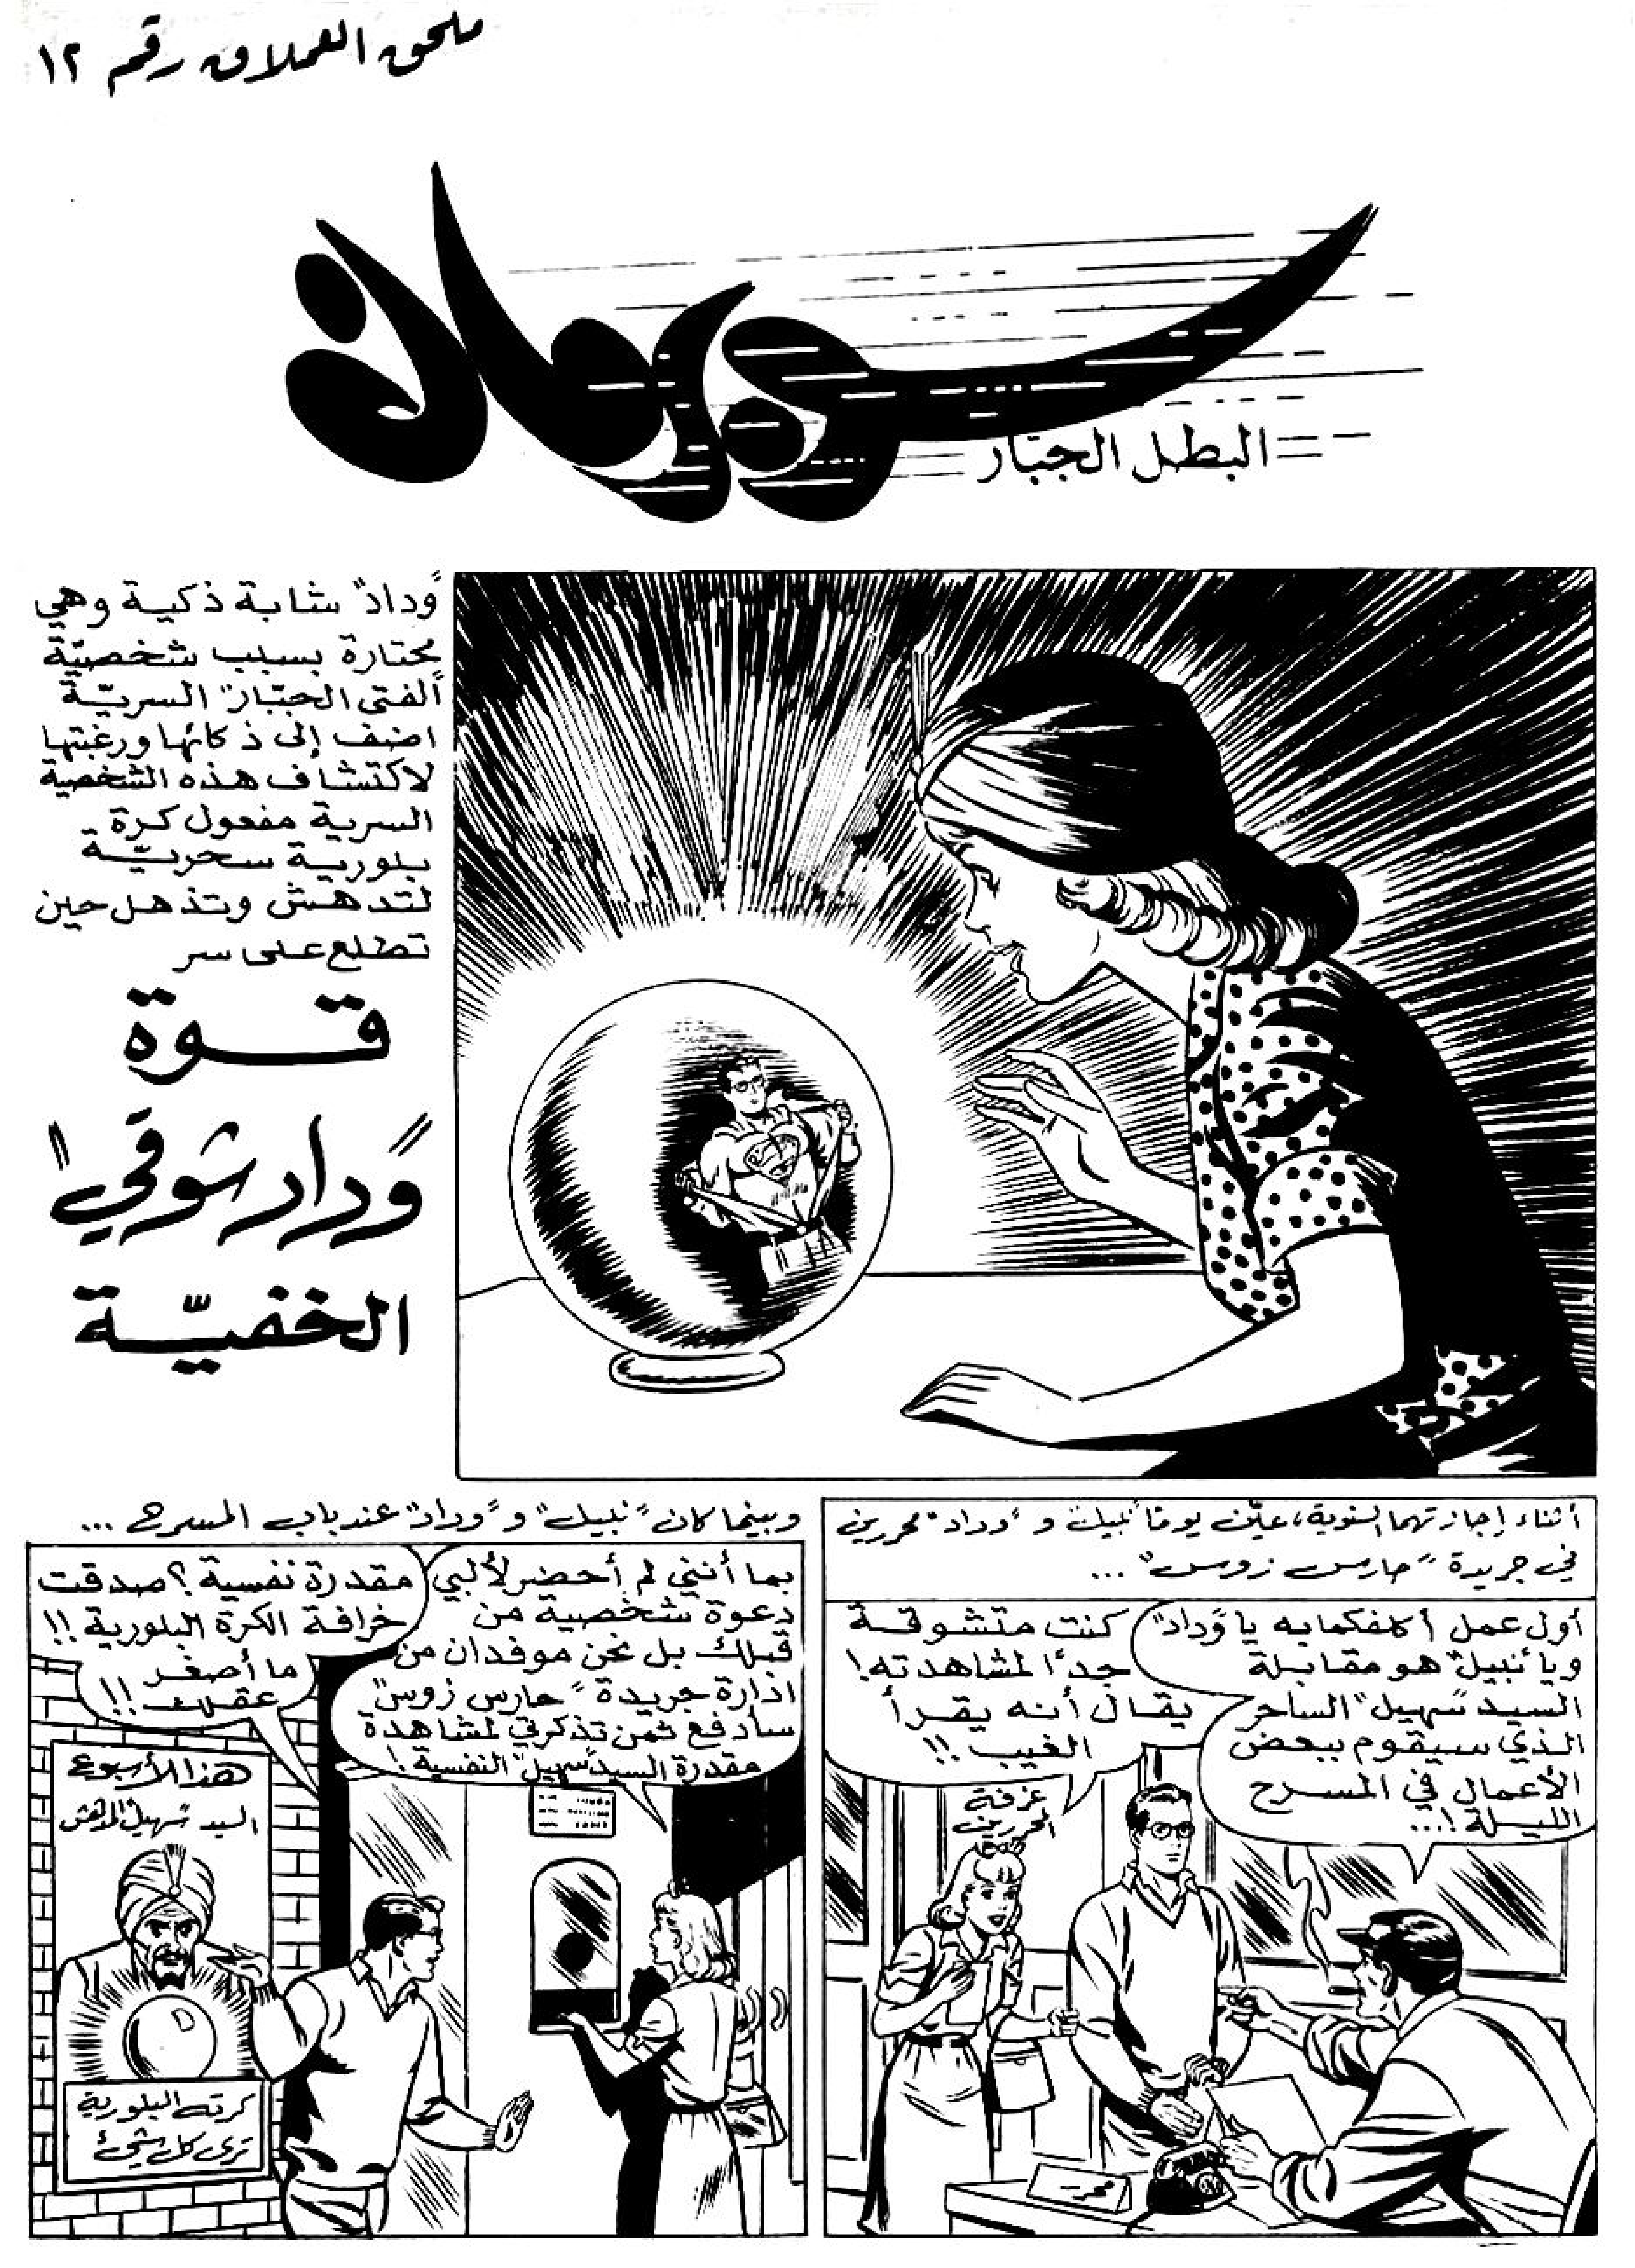 ملحق العملاق رقم ١٢
سوبرمان
البطل الجبّار
"وداد" شابة ذكية وهي
محتارة بسبب شخصيّة
"الفتى الجبّار" السريّة
اضف إلى ذكائها ورغبتها
لاكتشاف هذه الشخصية
السرية مفعول كرة
بلورية سحريّة
لتدهش وتذهل حين
تطلع على سر
قوة
"وداد شوقي"
الخفيّة
أثناء إجازتهما السنوية، عيّن يومًا "نبيل" و "وداد" محررين
في جريدة "حارس زوس" ...
أول عمل أكلفكما به يا "وداد"
ويا "نبيل" هو مقابلة
السيد "سهيل" الساحر
الذي سيقوم ببعض
الأعمال في المسرح
الليلة!...
كنت متشوقة
جدًا لمشاهدته!
يقال أنه يقرأ
الغيب!!
غرفة
المحررين
وبينما كان "نبيل" و "وداد" عند باب المسرح ...
بما أنني لم أحضر لألبي
دعوة شخصية من
قبلك بل نحن موفدان من
ادارة جريدة "حارس زوس"
سأدفع ثمن تذكرتي لمشاهدة
مقدرة السيد "سهيل" النفسية!
مقدرة نفسية؟ صدقت
خرافة الكرة البلورية!!
ما أصغر
عقلك!!
هذا الأسبوع
السيد "سهيل" المدهش
كرته البلورية
ترى كل شيئ